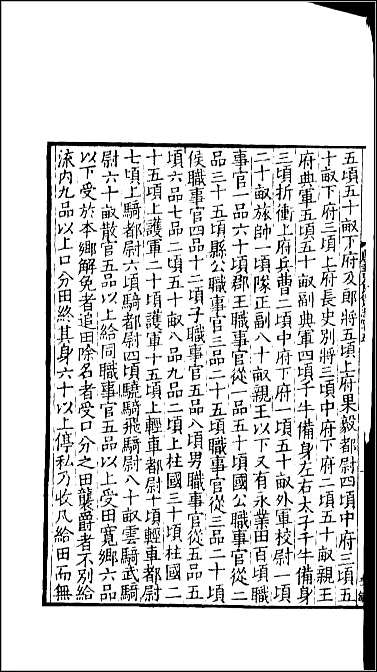 五頃五十畝下府及郎將五頃上府果毅都尉四頃中府三頃五
十畝下府三頃上府長史別將三頃中府下府二頃五十畝親王
府典軍五頃五十畝副典軍四頃千牛備身左右太子千牛備身
三頃折衝上府兵曹二頃中府下府一頃五十畝外軍校尉一頃
二十畝旅帥一頃隊正副八十畝親王以下又有永業田百頃職
事官一品六十頃郡王職事官從一品五十頃國公職事官從二
品三十五頃縣公職事官三品二十五頃職事官從三品二十頃
侯職事官四品十二頃子職事官五品八頃男職事官從五品五
頃六品七品二頃五十畝八品九品二頃上柱國三十頃柱國二
十五頃上護軍二十頃護軍十五頃上輕車都尉十頃輕車都尉
七頃上騎都尉六頃騎都尉四頃驍騎飛騎尉八十畝雲騎武騎
尉六十畝散官五品以上給同職事官五品以上受田寬鄉六品
以下受於本鄉解免者追田除名者受口分之田襲爵者不別給
流內九品以上口分田終其身六十以上停私乃收凡給田而無